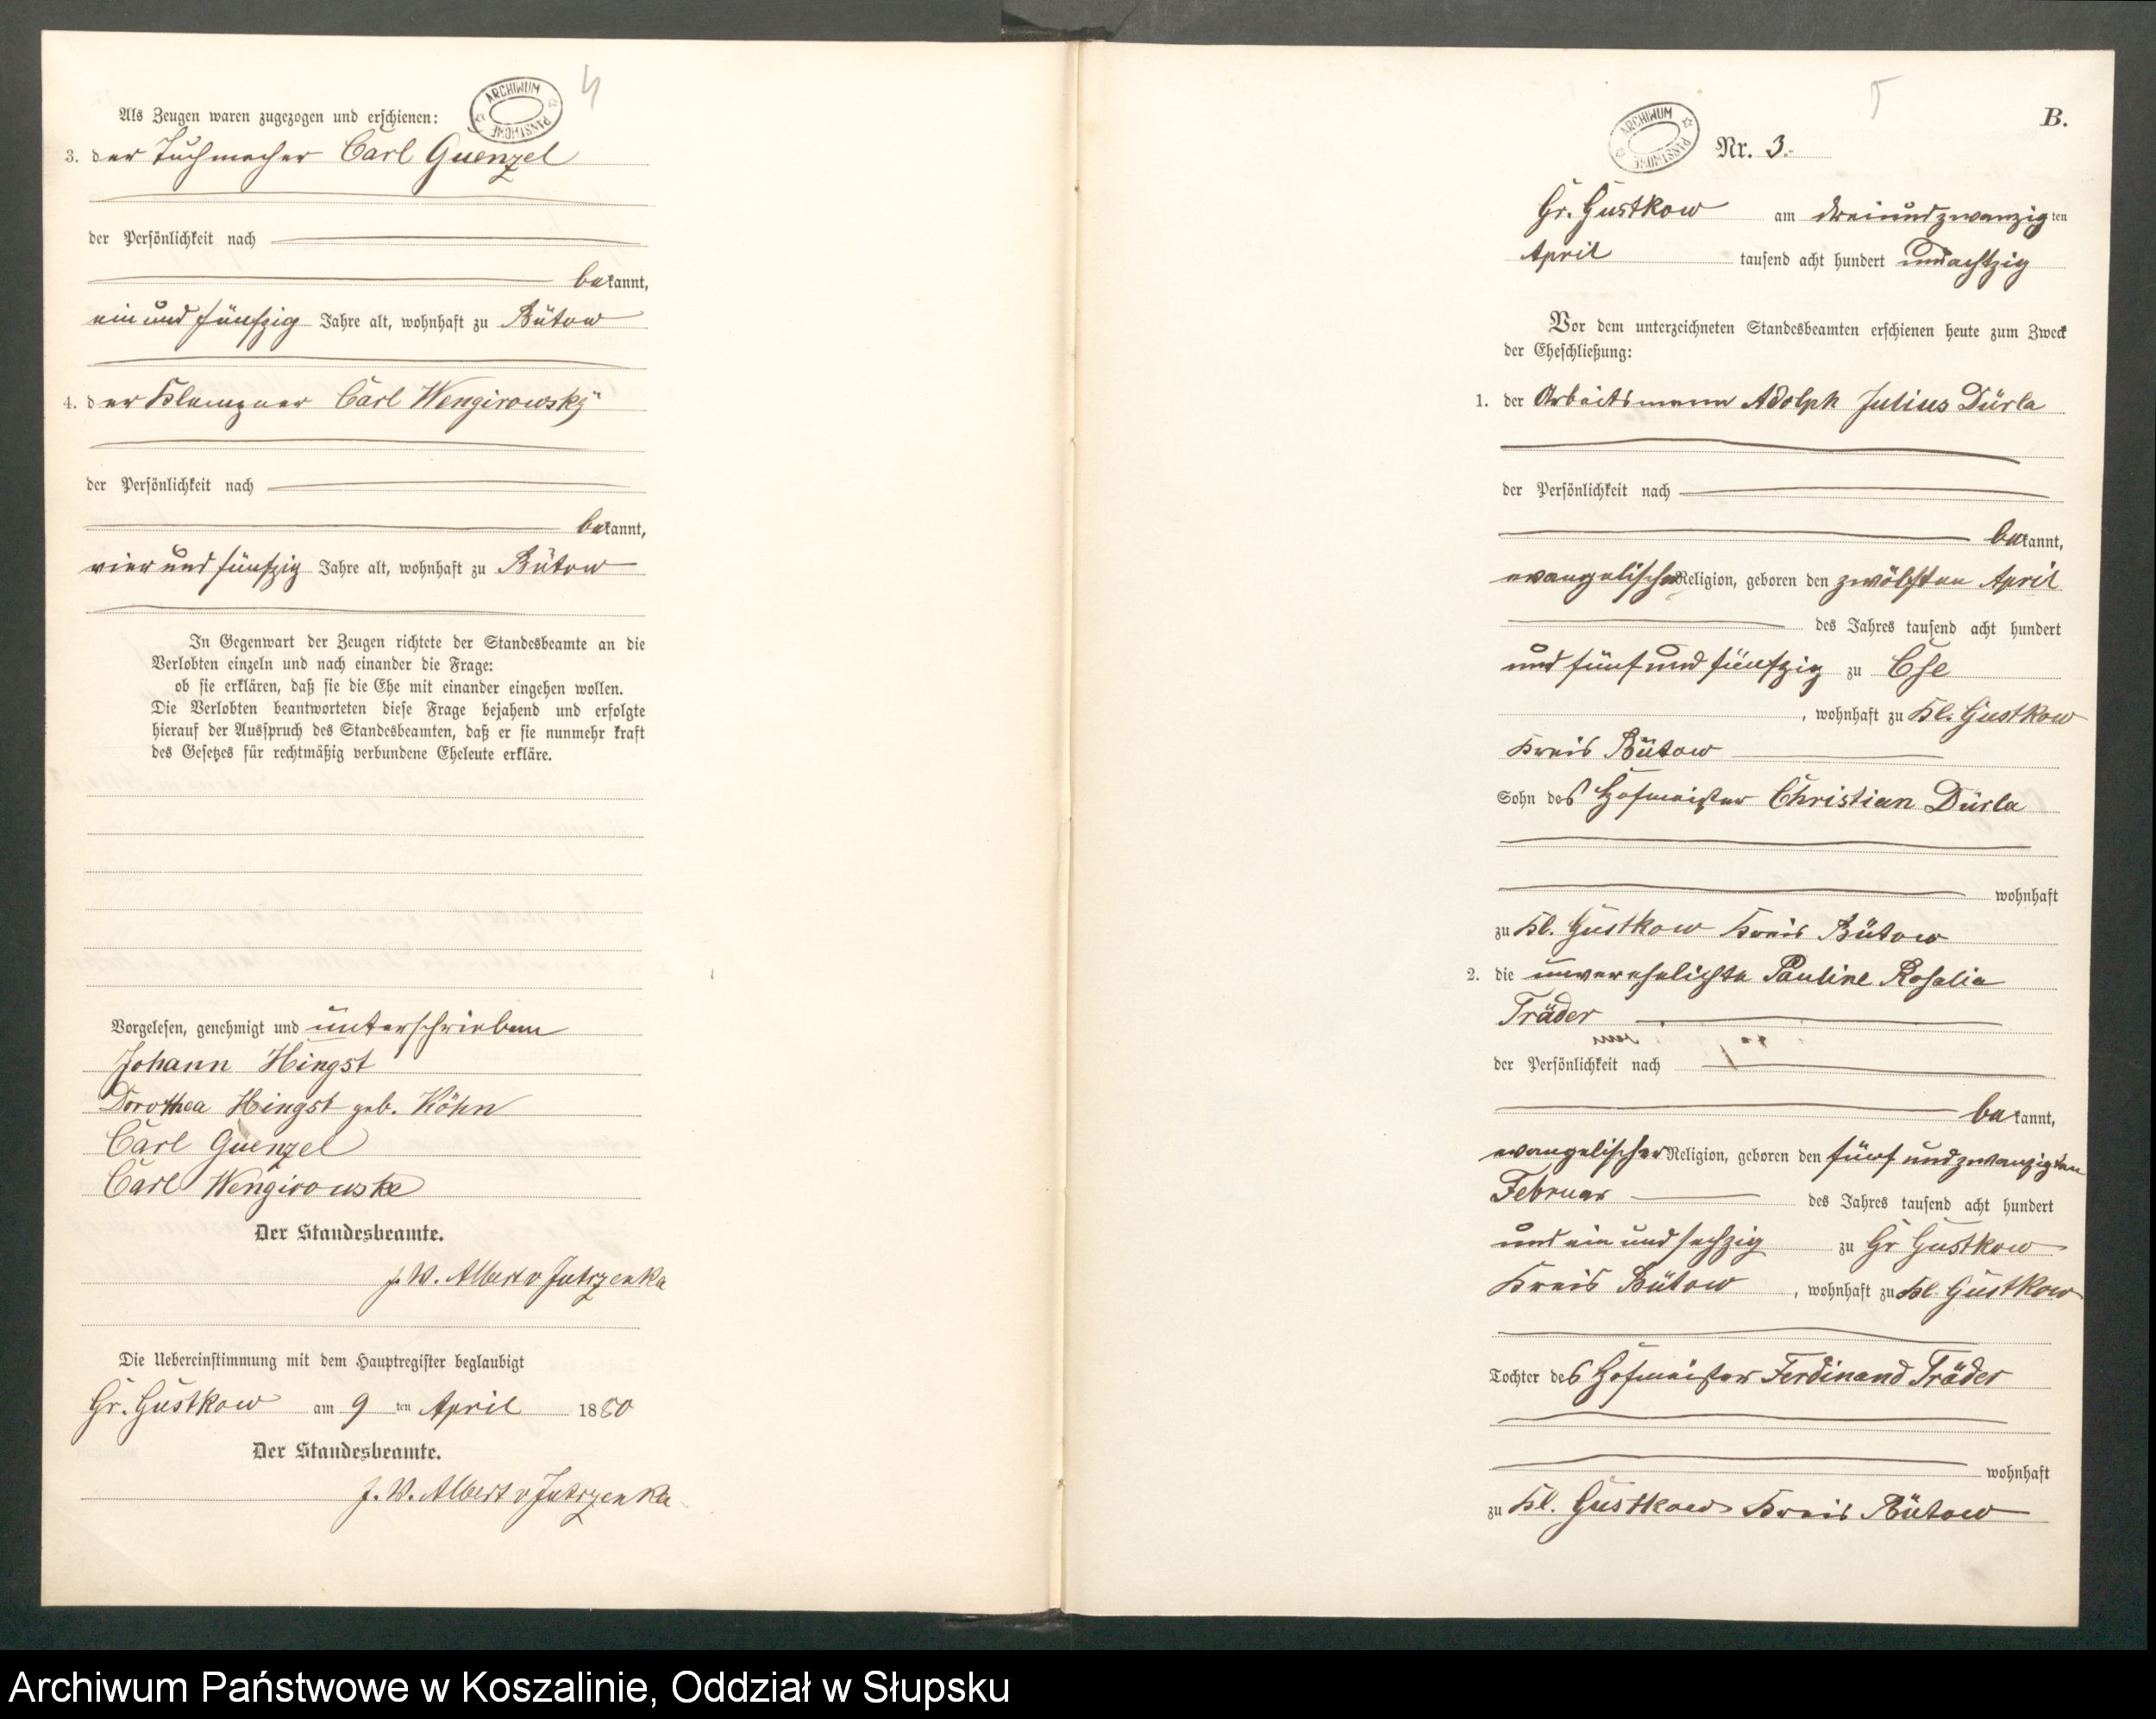 4
ARCHIWUM
PAŃSTWOWE
Als Zeugen waren zugezogen und erschienen:
3. der Tuchmacher Carl Guenzel
der Persönlichkeit nach
bekannt,
ein und fünfzig Jahre alt, wohnhaft zu Bütow
4. der Klempner Carl Wengirowsky
der Persönlichkeit nach
bekannt,
vier und fünfzig Jahre alt, wohnhaft zu Bütow
In Gegenwart der Zeugen richtete der Standesbeamte an die
Verlobten einzeln und nach einander die Frage:
ob sie erklären, daß sie die Ehe mit einander eingehen wollen.
Die Verlobten beantworteten diese Frage bejahend und erfolgte
hierauf der Ausspruch des Standesbeamten, daß er sie nunmehr kraft
des Gesetzes für rechtmäßig verbundene Eheleute erkläre.
Vorgelesen, genehmigt und unterschrieben
Johann Hingst
Dorothea Hingst geb. Köhn
Carl Guenzel
Carl Wengirowske
Der Standesbeamte.
J. W. Albert v Jutrzenka
Die Uebereinstimmung mit dem Hauptregister beglaubigt
Gr. Gustkow am 9 ten April 1880
Der Standesbeamte.
J. W. Albert v Jutrzenka
5
B.
ARCHIWUM
PAŃSTWOWE
Nr. 3.
Gr. Gustkow am dreiundzwanzig ten
April tausend acht hundert und achtzig
Vor dem unterzeichneten Standesbeamten erschienen heute zum Zweck
der Eheschließung:
1. der Arbeitsmann Adolph Julius Dürla
der Persönlichkeit nach
bekannt,
evangelischer Religion, geboren den zwölften April
des Jahres tausend acht hundert
und fünf und fünfzig zu
, wohnhaft zu Kl. Gustkow
Kreis Bütow
Sohn des Hofmeister Christian Dürla
wohnhaft
zu Kl. Gustkow Kreis Bütow
2. die unverehelichte Pauline Rosalia
Träder
der Persönlichkeit nach
bekannt,
evangelischer Religion, geboren den fünf und zwanzigsten
Februar des Jahres tausend acht hundert
und ein und sechzig zu Gr Gustkow
Kreis Bütow , wohnhaft zu Kl. Gustkow
Tochter des Hofmeister Ferdinand Träder
wohnhaft
zu Kl. Gustkow Kreis Bütow
Archiwum Państwowe w Koszalinie, Oddział w Słupsku